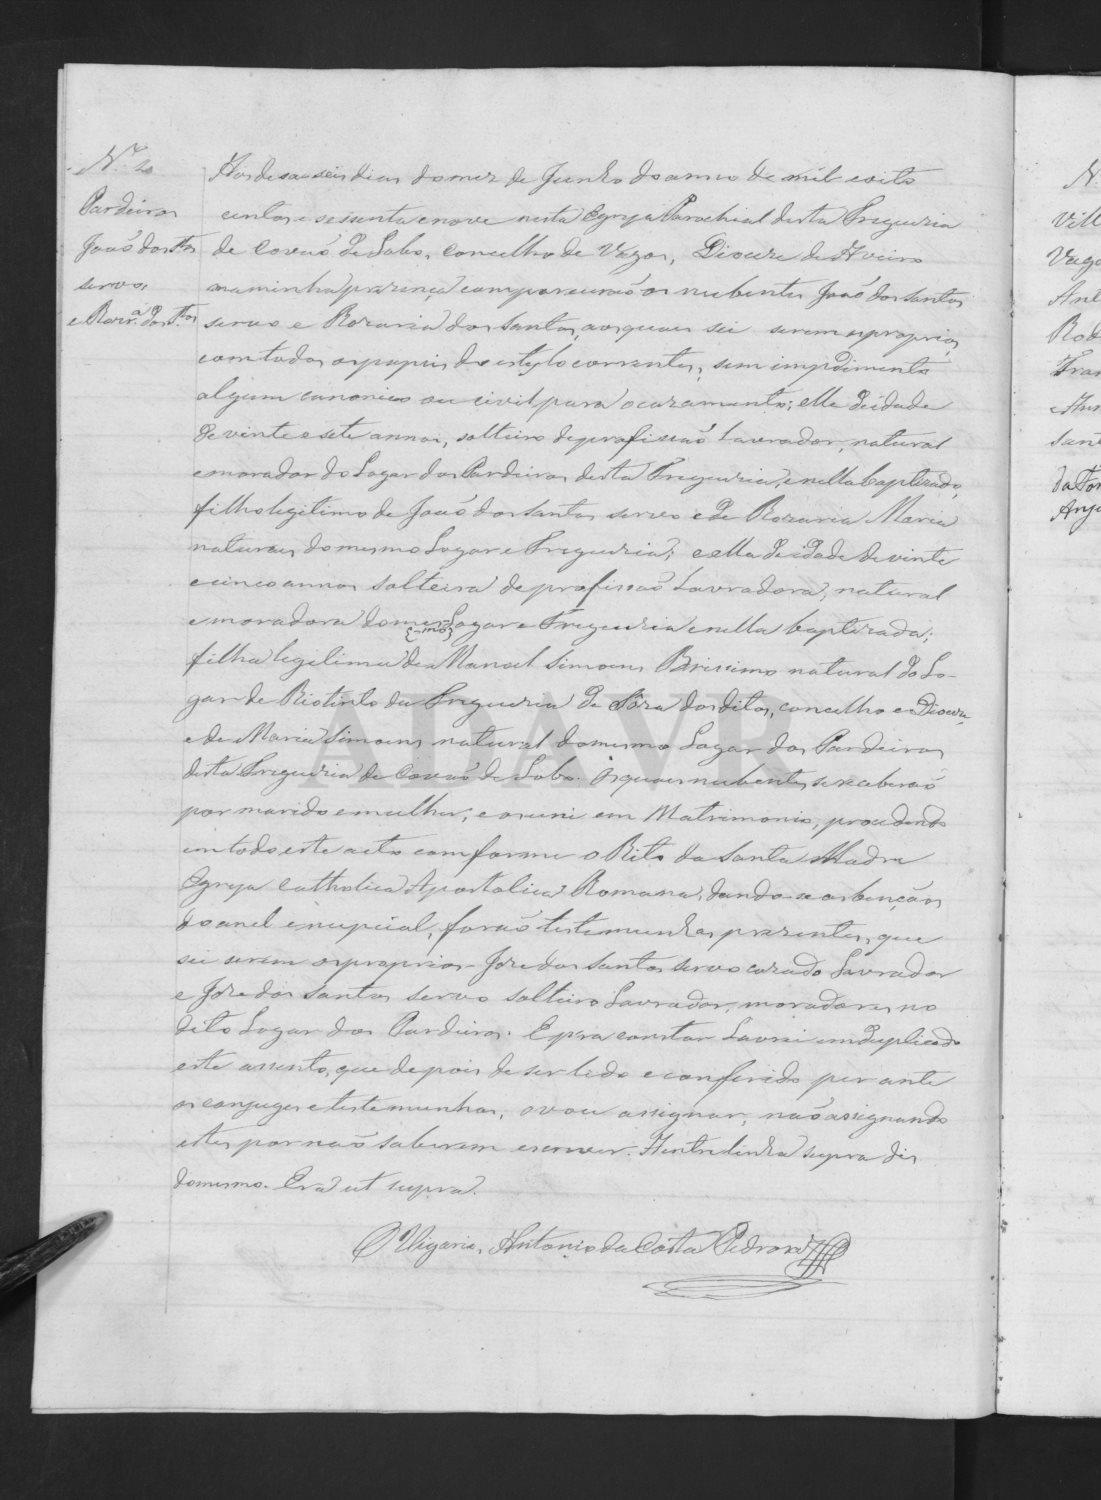 Nº 20
Pardeiros
João dos Stos
servo,
e Rozr.ª dos Stos
Aos desaseis dias do mez de Junho do anno de mil e oito
centos e sessenta e nove nesta Egreja Parochial desta Freguezia
de Covaõ de Lobo, concelho de Vagos, Diocese de Aveiro
na minha prezença compareceraõ os nubentes João dos Santos
servo e Rozaria dos Santos, aos quaes sei serem os proprios,
com todos os papeis do estylo correntes, sem impedimento
algum canonico ou civil para o cazamento; elle de idade
de vinte e sete annos, solteiro de profissaõ Lavrador, natural
e morador do Logar dos Pardeiros desta Freguezia, e nella baptizado,
filho legitimo de Joaõ dos Santos servo e de Rozaria Maria
naturaes do mesmo Logar e Freguezia; e ella de idade de vinte
e cinco annos solteira de profissaõ Lavradora, natural
e moradora do mes-Logar e Freguezia e nella baptizada;
{-mo}
filha legitima de Manoel Simoens Brissimo natural do Lo-
gar de Riotinto da Freguezia de Sôza dos ditos, concelho e Diocese,
e de Maria Simoens natural do mesmo Logar dos Pardeiros
desta Freguezia de Covaõ de Lobo. Os quaes nubentes se receberaõ
por marido e mulher, e os uni em Matrimonio, procedendo
em todo este acto conforme o Rito da Santa Madre
Egreja Catholica Apostolica Romana, dando-se as bençãos
do anel e nupcial, foraõ testemunhas prezentes, que
sei serem os proprios - Joze dos Santos servo cazado Lavrador
e Joze dos Santos servo solteiro Lavrador, moradores no
dito Logar dos Pardeiros. E pra constar Lavrei em duplicado
este assento, que depois de ser lido e conferido perante
os conjuges e testemunhas, o vou assignar, naõ assignando
estes por naõ saberem escrever. A entrelinha supra diz
do mesmo. Era ut supra.
O Vigario, Antonio da Costa Pedroza
ADAVR
N.
Vill
Vago
Ant
Rod
Fran
e An
Sant
da Fon
Anj